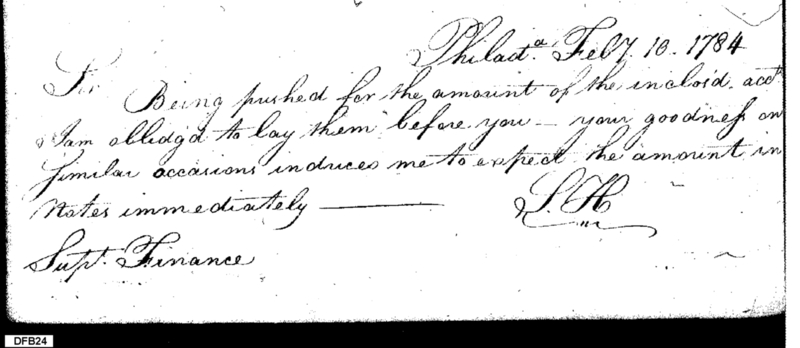 Philada. Feby. 10. 1784
Sir
Being pushed for the amount of the inclosd. acct.
I am obligd to lay them before you — your goodness on
similar occasions induces me to expect the amount in
Notes immediately ———
S. H
Supt. Finance
DFB24